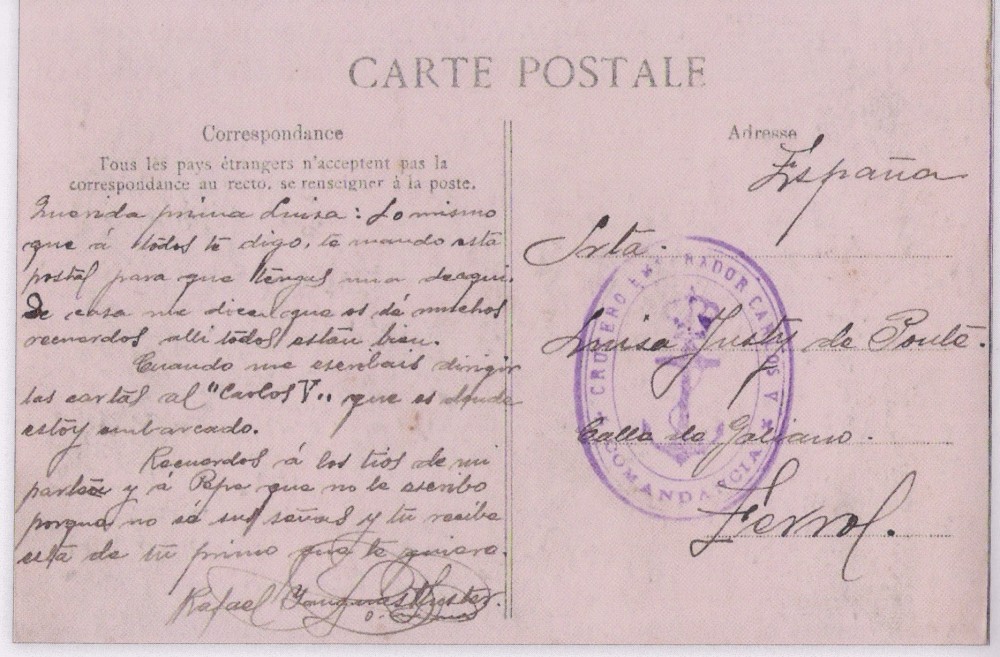 CARTE POSTALE
Correspondance
Tous les pays étrangers n'acceptent pas la
correspondance au recto, se renseigner à la poste.
Querida prima Luisa: Lo mismo
que á todos te digo, te mando esta
postal para que tengas una de aqui.
De casa me dicen que os dé muchos
recuerdos alli todos estan bien.
Cuando me escribais dirigir
las cartas al "Carlos V" que es donde
estoy embarcado.
Recuerdos á los tios de mi
parte y á Pepe que no le escribo
porque no sé sus señas y tu recibe
esta de tu primo que te quiere.
Rafael
Adresse
España
Srta.
Luisa de Ponte.
Calle de Galiano.
Ferrol.
CRUCERO EMPERADOR CARLOS V
COMANDANCIA